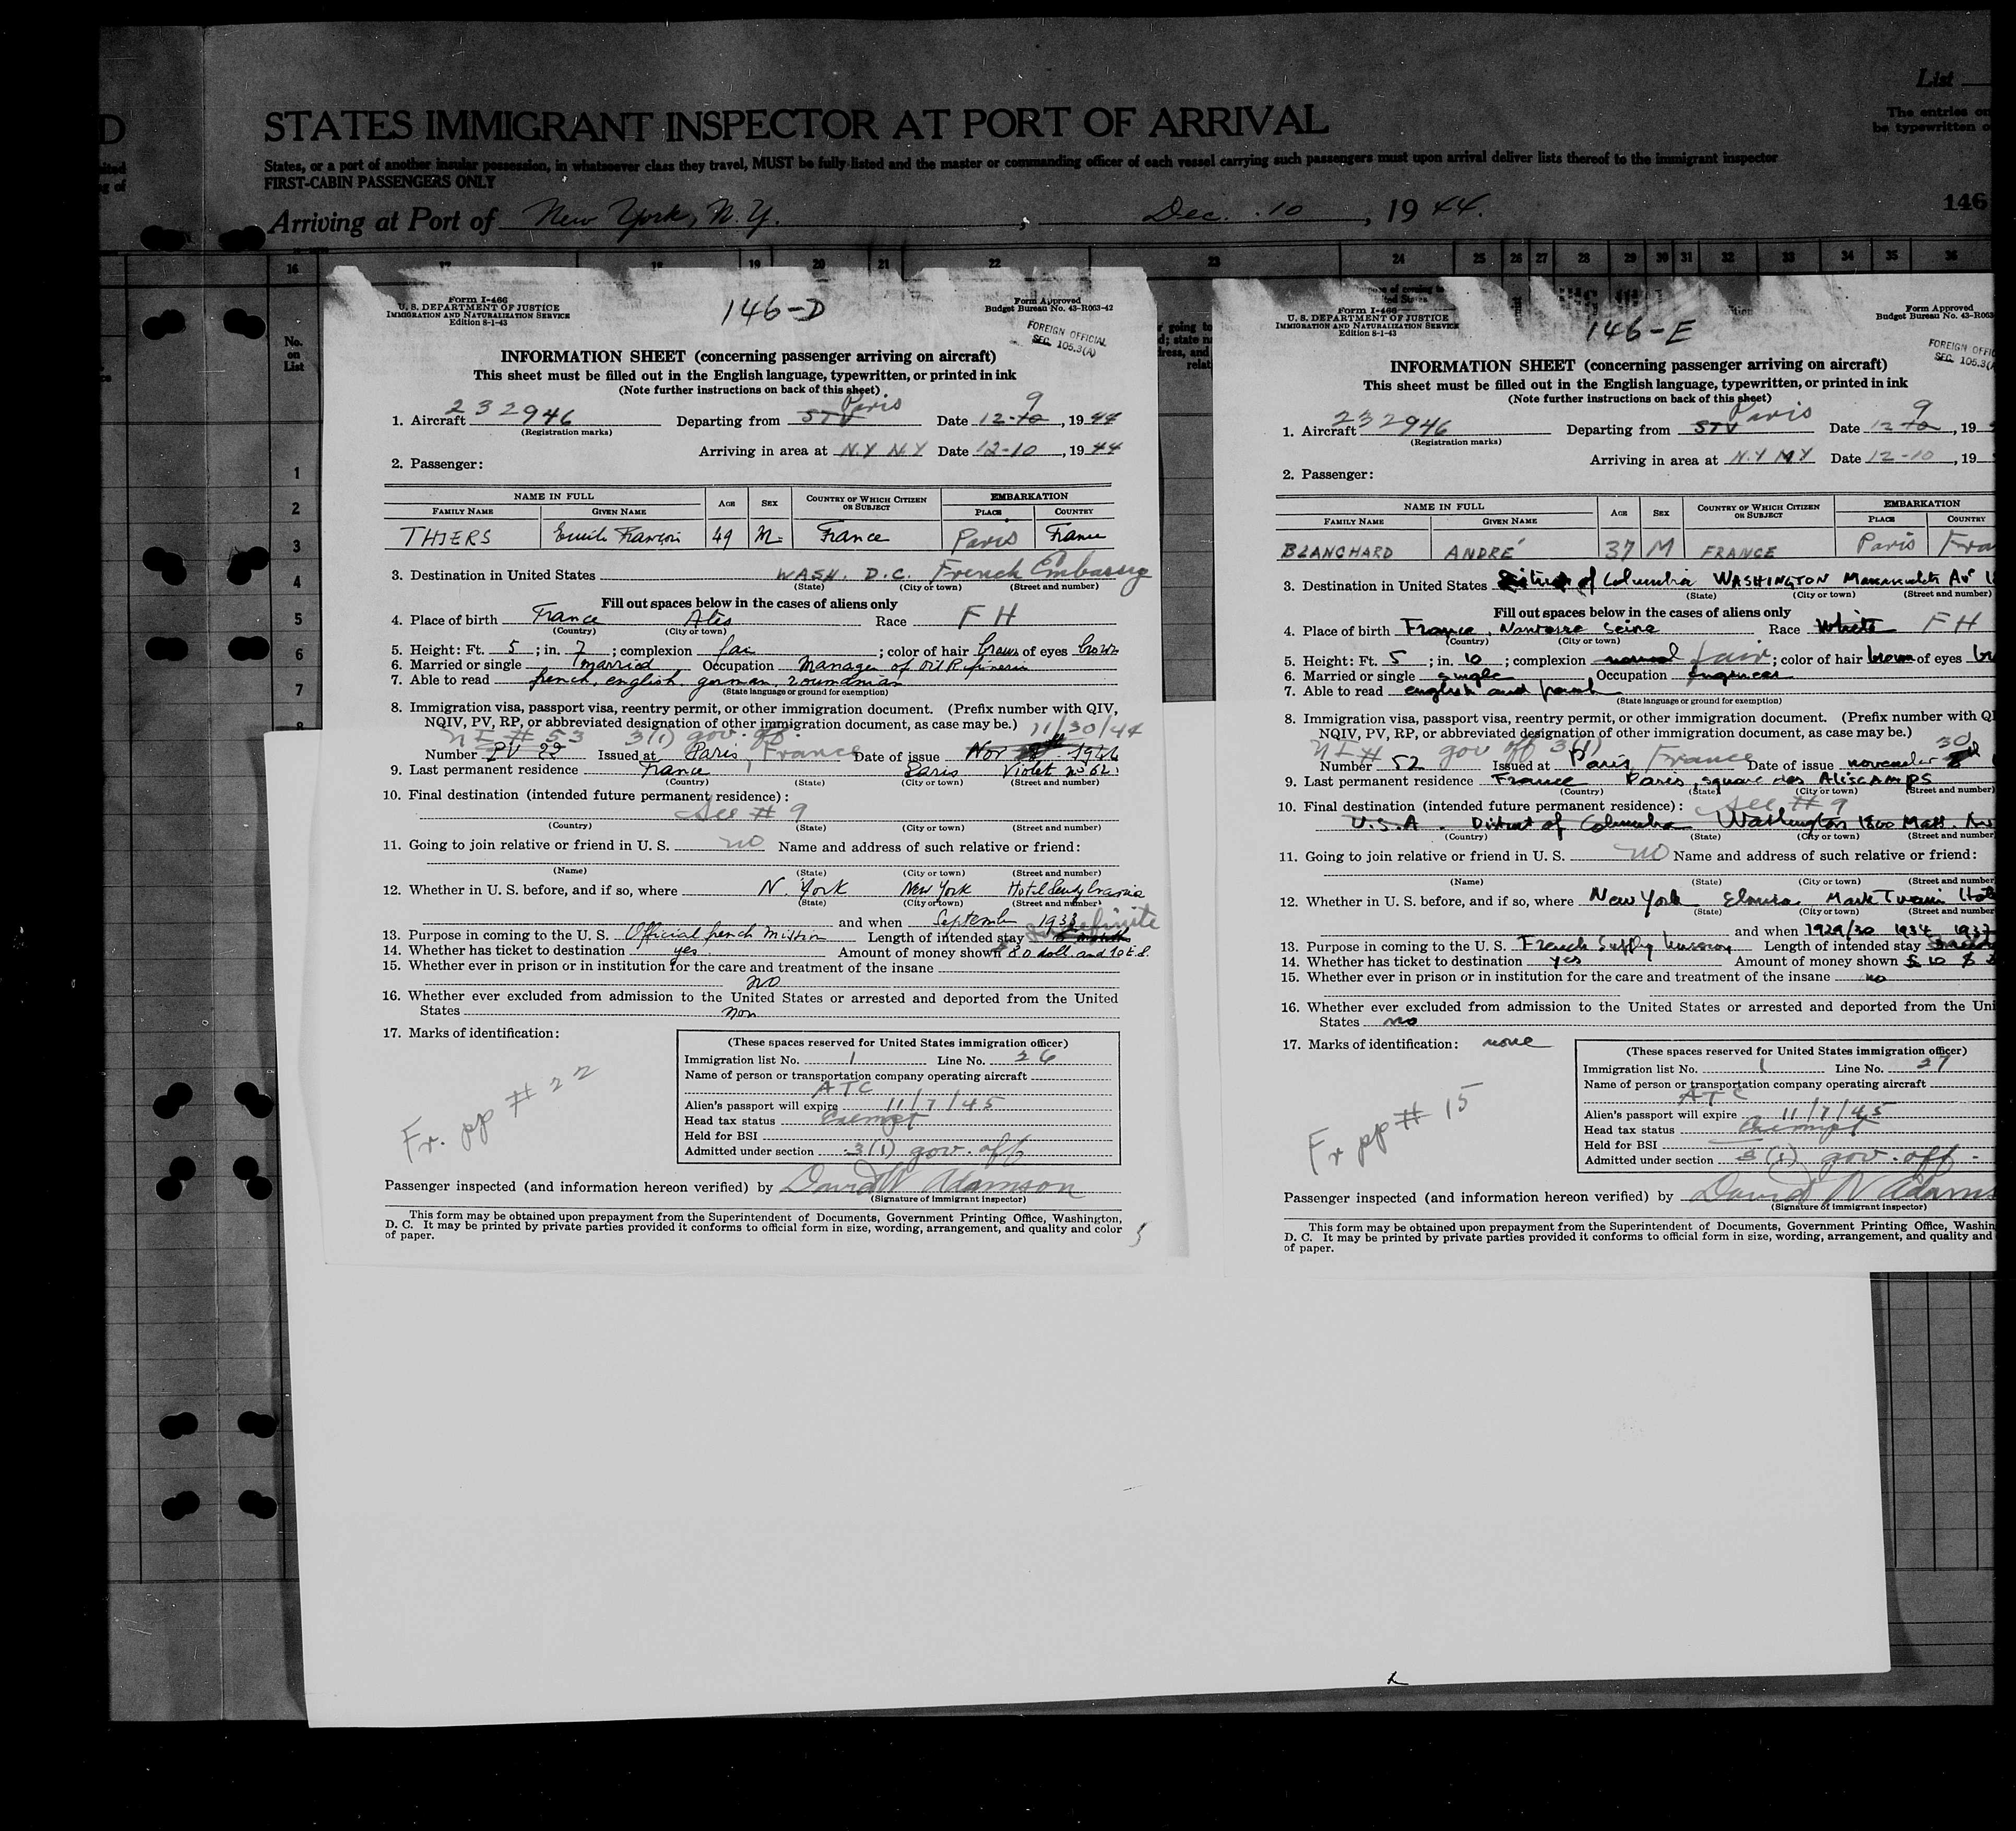 List
D
STATES IMMIGRANT INSPECTOR AT PORT OF ARRIVAL
The entries on
be typewritten
States, or a port of another insular possession, in whatsoever class they travel, MUST be fully listed and the master or commanding officer of each vessel carrying such passengers must upon arrival deliver lists thereof to the immigrant inspector
FIRST-CABIN PASSENGERS ONLY
Arriving at Port of New York, N.Y. , Dec. 10 , 1944.
146
16 17 18 19 20 21 22 23 24 25 26 27 28 29 30 31 32 33 34 35 36
No.
on
List
1
2
3
4
5
6
7
8
Form I-466
U. S. DEPARTMENT OF JUSTICE
IMMIGRATION AND NATURALIZATION SERVICE
Edition 8-1-43
146-D
Form Approved
Budget Bureau No. 43-R063-42
FOREIGN OFFICIAL
SEC. 105.3(A)
INFORMATION SHEET (concerning passenger arriving on aircraft)
This sheet must be filled out in the English language, typewritten, or printed in ink
(Note further instructions on back of this sheet)
1. Aircraft 232946 Departing from STV Paris Date 12-10 9, 1944
(Registration marks)
Arriving in area at N.Y N.Y Date 12-10, 1944
2. Passenger:
NAME IN FULL AGE SEX COUNTRY OF WHICH CITIZEN OR SUBJECT EMBARKATION
FAMILY NAME GIVEN NAME PLACE COUNTRY
THIERS Emile François 49 M. France Paris France
3. Destination in United States WASH. D.C. French Embassy
(State) (City or town) (Street and number)
Fill out spaces below in the cases of aliens only
4. Place of birth France Race F H
(Country) (City or town)
5. Height: Ft. 5; in. 7; complexion fair; color of hair brown of eyes brown
6. Married or single married Occupation Manager of Oil Refineries
7. Able to read french, english, german, roumanian
(State language or ground for exemption)
8. Immigration visa, passport visa, reentry permit, or other immigration document. (Prefix number with QIV,
NQIV, PV, RP, or abbreviated designation of other immigration document, as case may be.) 11/30/44
NI # 53 3(1) gov. off.
Number PV 22 Issued at Paris, France Date of issue Nov 1944
9. Last permanent residence France Paris Violet no 62
(Country) (State) (City or town) (Street and number)
10. Final destination (intended future permanent residence):
See # 9
(Country) (State) (City or town) (Street and number)
11. Going to join relative or friend in U. S. no Name and address of such relative or friend:
(Name) (State) (City or town) (Street and number)
12. Whether in U. S. before, and if so, where N. York New York Hotel Pensylvania
(State) (City or town) (Street and number)
and when September 1933
13. Purpose in coming to the U. S. Official french Mission Length of intended stay Indefinite
14. Whether has ticket to destination yes Amount of money shown 80 doll. and
15. Whether ever in prison or in institution for the care and treatment of the insane
no
16. Whether ever excluded from admission to the United States or arrested and deported from the United
States non
17. Marks of identification:
Fr. pp # 22
(These spaces reserved for United States immigration officer)
Immigration list No. 1 Line No. 26
Name of person or transportation company operating aircraft
ATC
Alien's passport will expire 11/7/45
Head tax status Exempt
Held for BSI
Admitted under section 3(1) gov. off
Passenger inspected (and information hereon verified) by David W Adamson
(Signature of immigrant inspector)
This form may be obtained upon prepayment from the Superintendent of Documents, Government Printing Office, Washington,
D. C. It may be printed by private parties provided it conforms to official form in size, wording, arrangement, and quality and color
of paper.
Form I-466
U. S. DEPARTMENT OF JUSTICE
IMMIGRATION AND NATURALIZATION SERVICE
Edition 8-1-43
146-E
Form Approved
Budget Bureau No. 43-R063
FOREIGN OFFIC
SEC. 105.3(A
INFORMATION SHEET (concerning passenger arriving on aircraft)
This sheet must be filled out in the English language, typewritten, or printed in ink
(Note further instructions on back of this sheet)
1. Aircraft 232946 Departing from STV Paris Date 12-10 9, 19
(Registration marks)
Arriving in area at N.Y NY Date 12-10, 19
2. Passenger:
NAME IN FULL AGE SEX COUNTRY OF WHICH CITIZEN OR SUBJECT EMBARKATION
FAMILY NAME GIVEN NAME PLACE COUNTRY
BLANCHARD ANDRÉ 37 M FRANCE Paris Fra
3. Destination in United States District of Columbia WASHINGTON Massachusetts Av
(State) (City or town) (Street and number)
Fill out spaces below in the cases of aliens only
4. Place of birth France, Nanterre Seine Race White F H
(Country) (City or town)
5. Height: Ft. 5; in. 10; complexion normal fair; color of hair brown of eyes br
6. Married or single single Occupation Engineer
7. Able to read english and french
(State language or ground for exemption)
8. Immigration visa, passport visa, reentry permit, or other immigration document. (Prefix number with QI
NQIV, PV, RP, or abbreviated designation of other immigration document, as case may be.)
NI # gov off 3(1) 30
Number 52 Issued at Paris, France Date of issue november
9. Last permanent residence France Paris, square des Aliscamps
(Country) (State) (City or town) (Street and number)
10. Final destination (intended future permanent residence): See # 9
U.S.A. District of Columbia Washington 1800 Mass. Av
(Country) (State) (City or town) (Street and number
11. Going to join relative or friend in U. S. no Name and address of such relative or friend:
(Name) (State) (City or town) (Street and number
12. Whether in U. S. before, and if so, where New York Elmira Mark Twain Hot
(State) (City or town) (Street and number
and when 1929/30 1934 1937
13. Purpose in coming to the U. S. French Supply Mission Length of intended stay
14. Whether has ticket to destination yes Amount of money shown
15. Whether ever in prison or in institution for the care and treatment of the insane no
16. Whether ever excluded from admission to the United States or arrested and deported from the Uni
States no
17. Marks of identification: none
Fr pp # 15
(These spaces reserved for United States immigration officer)
Immigration list No. 1 Line No. 27
Name of person or transportation company operating aircraft
ATC
Alien's passport will expire 11/7/45
Head tax status Exempt
Held for BSI
Admitted under section 3(1) gov. off.
Passenger inspected (and information hereon verified) by David W Adams
(Signature of immigrant inspector)
This form may be obtained upon prepayment from the Superintendent of Documents, Government Printing Office, Washin
D. C. It may be printed by private parties provided it conforms to official form in size, wording, arrangement, and quality and
of paper.